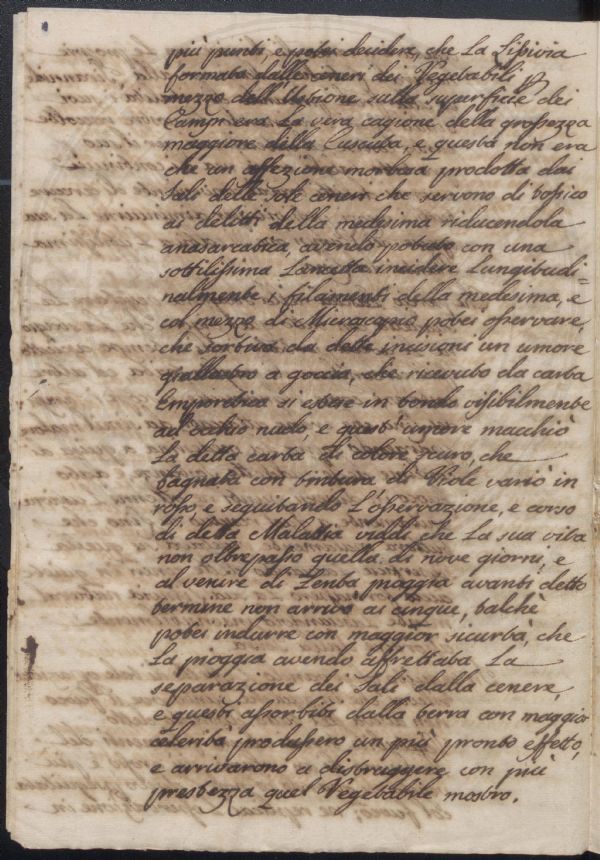 più punti, e potei decidere, che La Lissivia
formata dalle ceneri dei Vegetabili p
mezzo dell'Ustione sulla superficie dei
Campi era La vera cagione della grossezza
maggiore della Cuscuta, e questa non era
che un affezione morbosa prodotta dai
Sali delle sole ceneri che servono di tossico
ai delitti della medesima riducendola
anasarcatica, avendo potuto con una
sottilissima Lancetta incidere Lungitudi=
nalmente i filamenti della medesima, e
col mezzo di Microscopio potei osservare,
che sortiva da dette incisioni un umore
giallastro a goccia, che ricevuto da carta
Emporetica si estese in tondo visibilmente
ad occhio nudo, e quest'umore macchiò
La detta carta di colore scuro, che
bagnata con tintura di Viole variò in
rosso, e seguitando L'osservazione, e corso
di detta Malattia viddi che La sua vita
non oltrepassò quella di nove giorni, e
al venire di Lenta pioggia avanti detto
termine non arrivò ai cinque, talchè
potei indurre con maggior sicurtà, che
La pioggia avendo affrettata La
separazione dei Sali dalla cenere,
e questi assorbiti dalla terra con maggior
celerità produssero un più pronto effetto,
e arrivarono a distruggere con più
prestezza quel Vegetabile mostro.